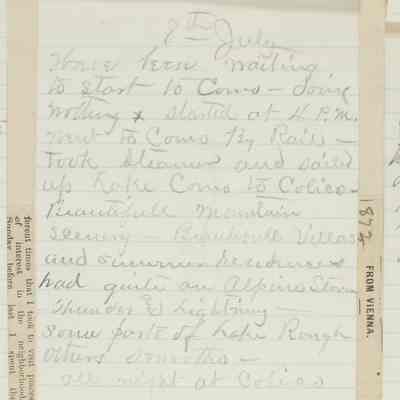 7th July
Have been waiting
to start to Como - doing
nothing & started at 4 P.M.
went to Como By Rail -
Took steamer and sailed
up Lake Como to Colico -
Beautifull Mountain
Scenery - Beautifull Villas
and summer residences
had quite an Alpine Storm
Thunder & Lightning
Some parts of Lake Rough
Others Smooth -
all night at Colico
1872
FROM VIENNA.
ferent times that I took to visit places
of interest in the neighborhood
Sunday before last I spent the